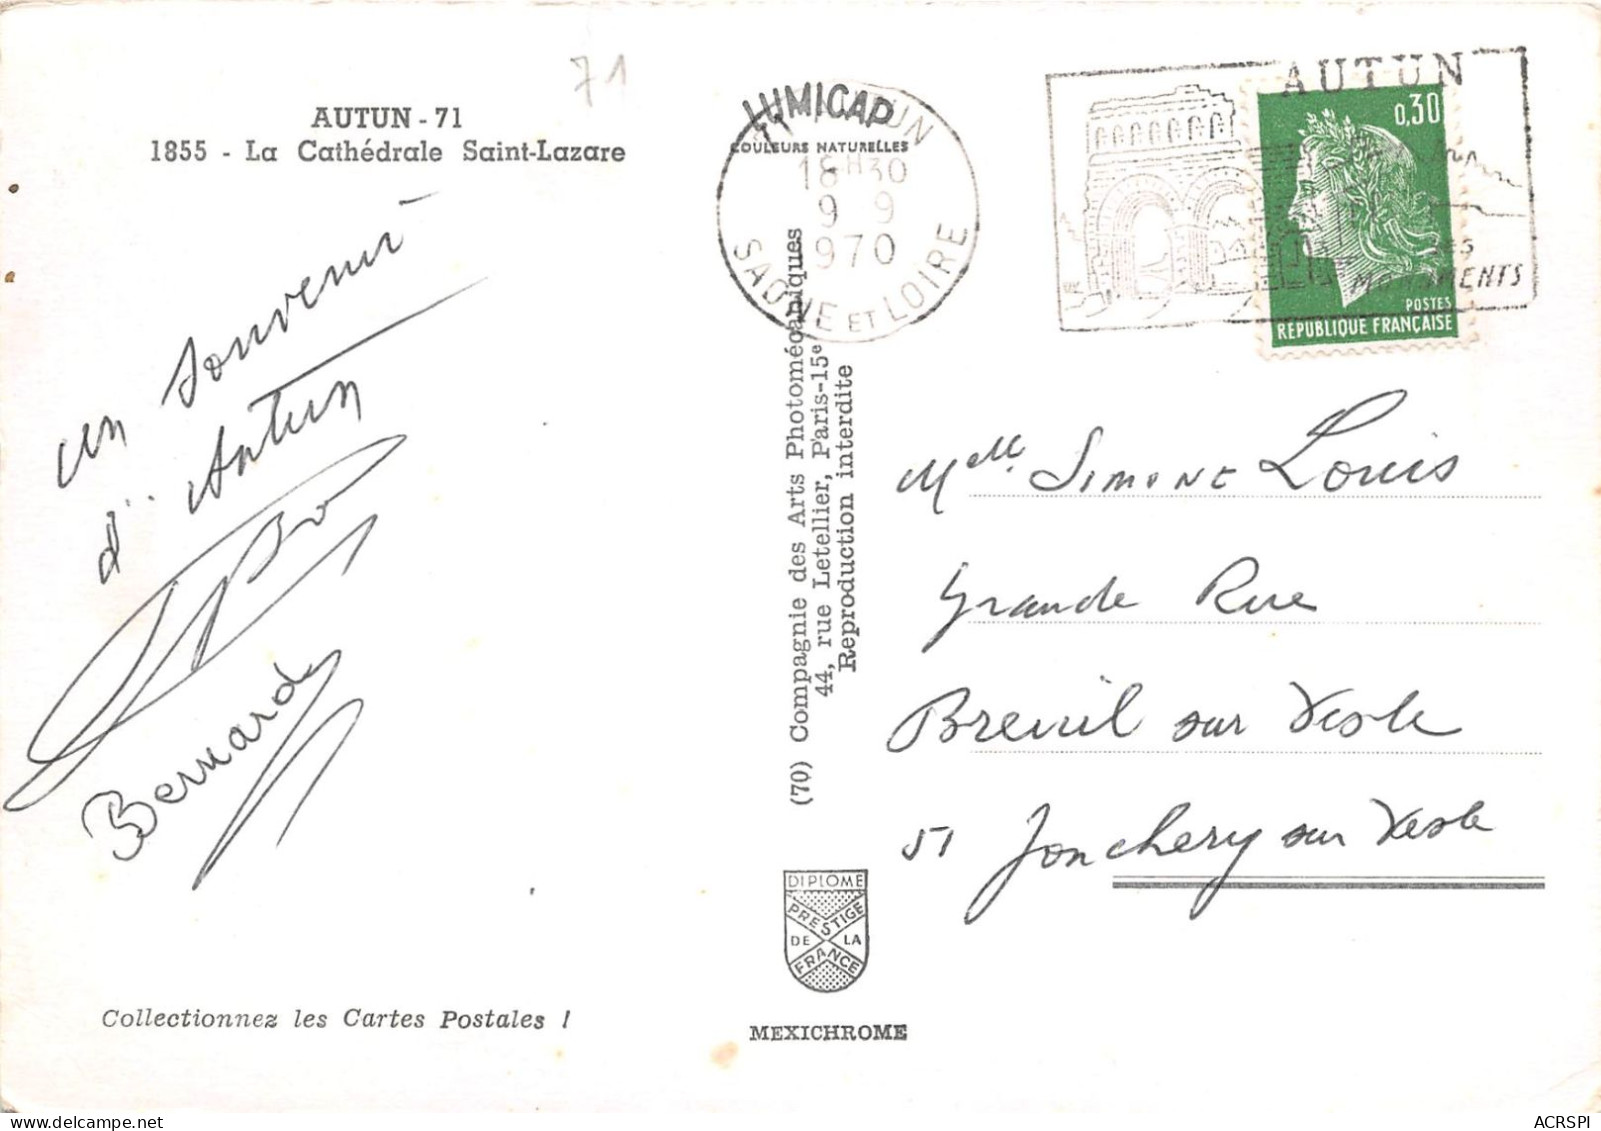 71
AUTUN - 71
1855 - La Cathédrale Saint-Lazare
un souvenir
d'Autun
Bernard
Collectionnez les Cartes Postales !
LUMICAP
COULEURS NATURELLES
18H30
9 9
970
SAONE ET LOIRE
(70) Compagnie des Arts Photomécaniques
44, rue Letellier, Paris-15e
Reproduction interdite
DIPLOME
PRESTIGE
DE LA
FRANCE
MEXICHROME
AUTUN
SES
MONUMENTS
0,30
POSTES
REPUBLIQUE FRANÇAISE
Melle Simone Louis
Grande Rue
Breuil sur Vesle
51 Jonchery sur Vesle
ACRSPI